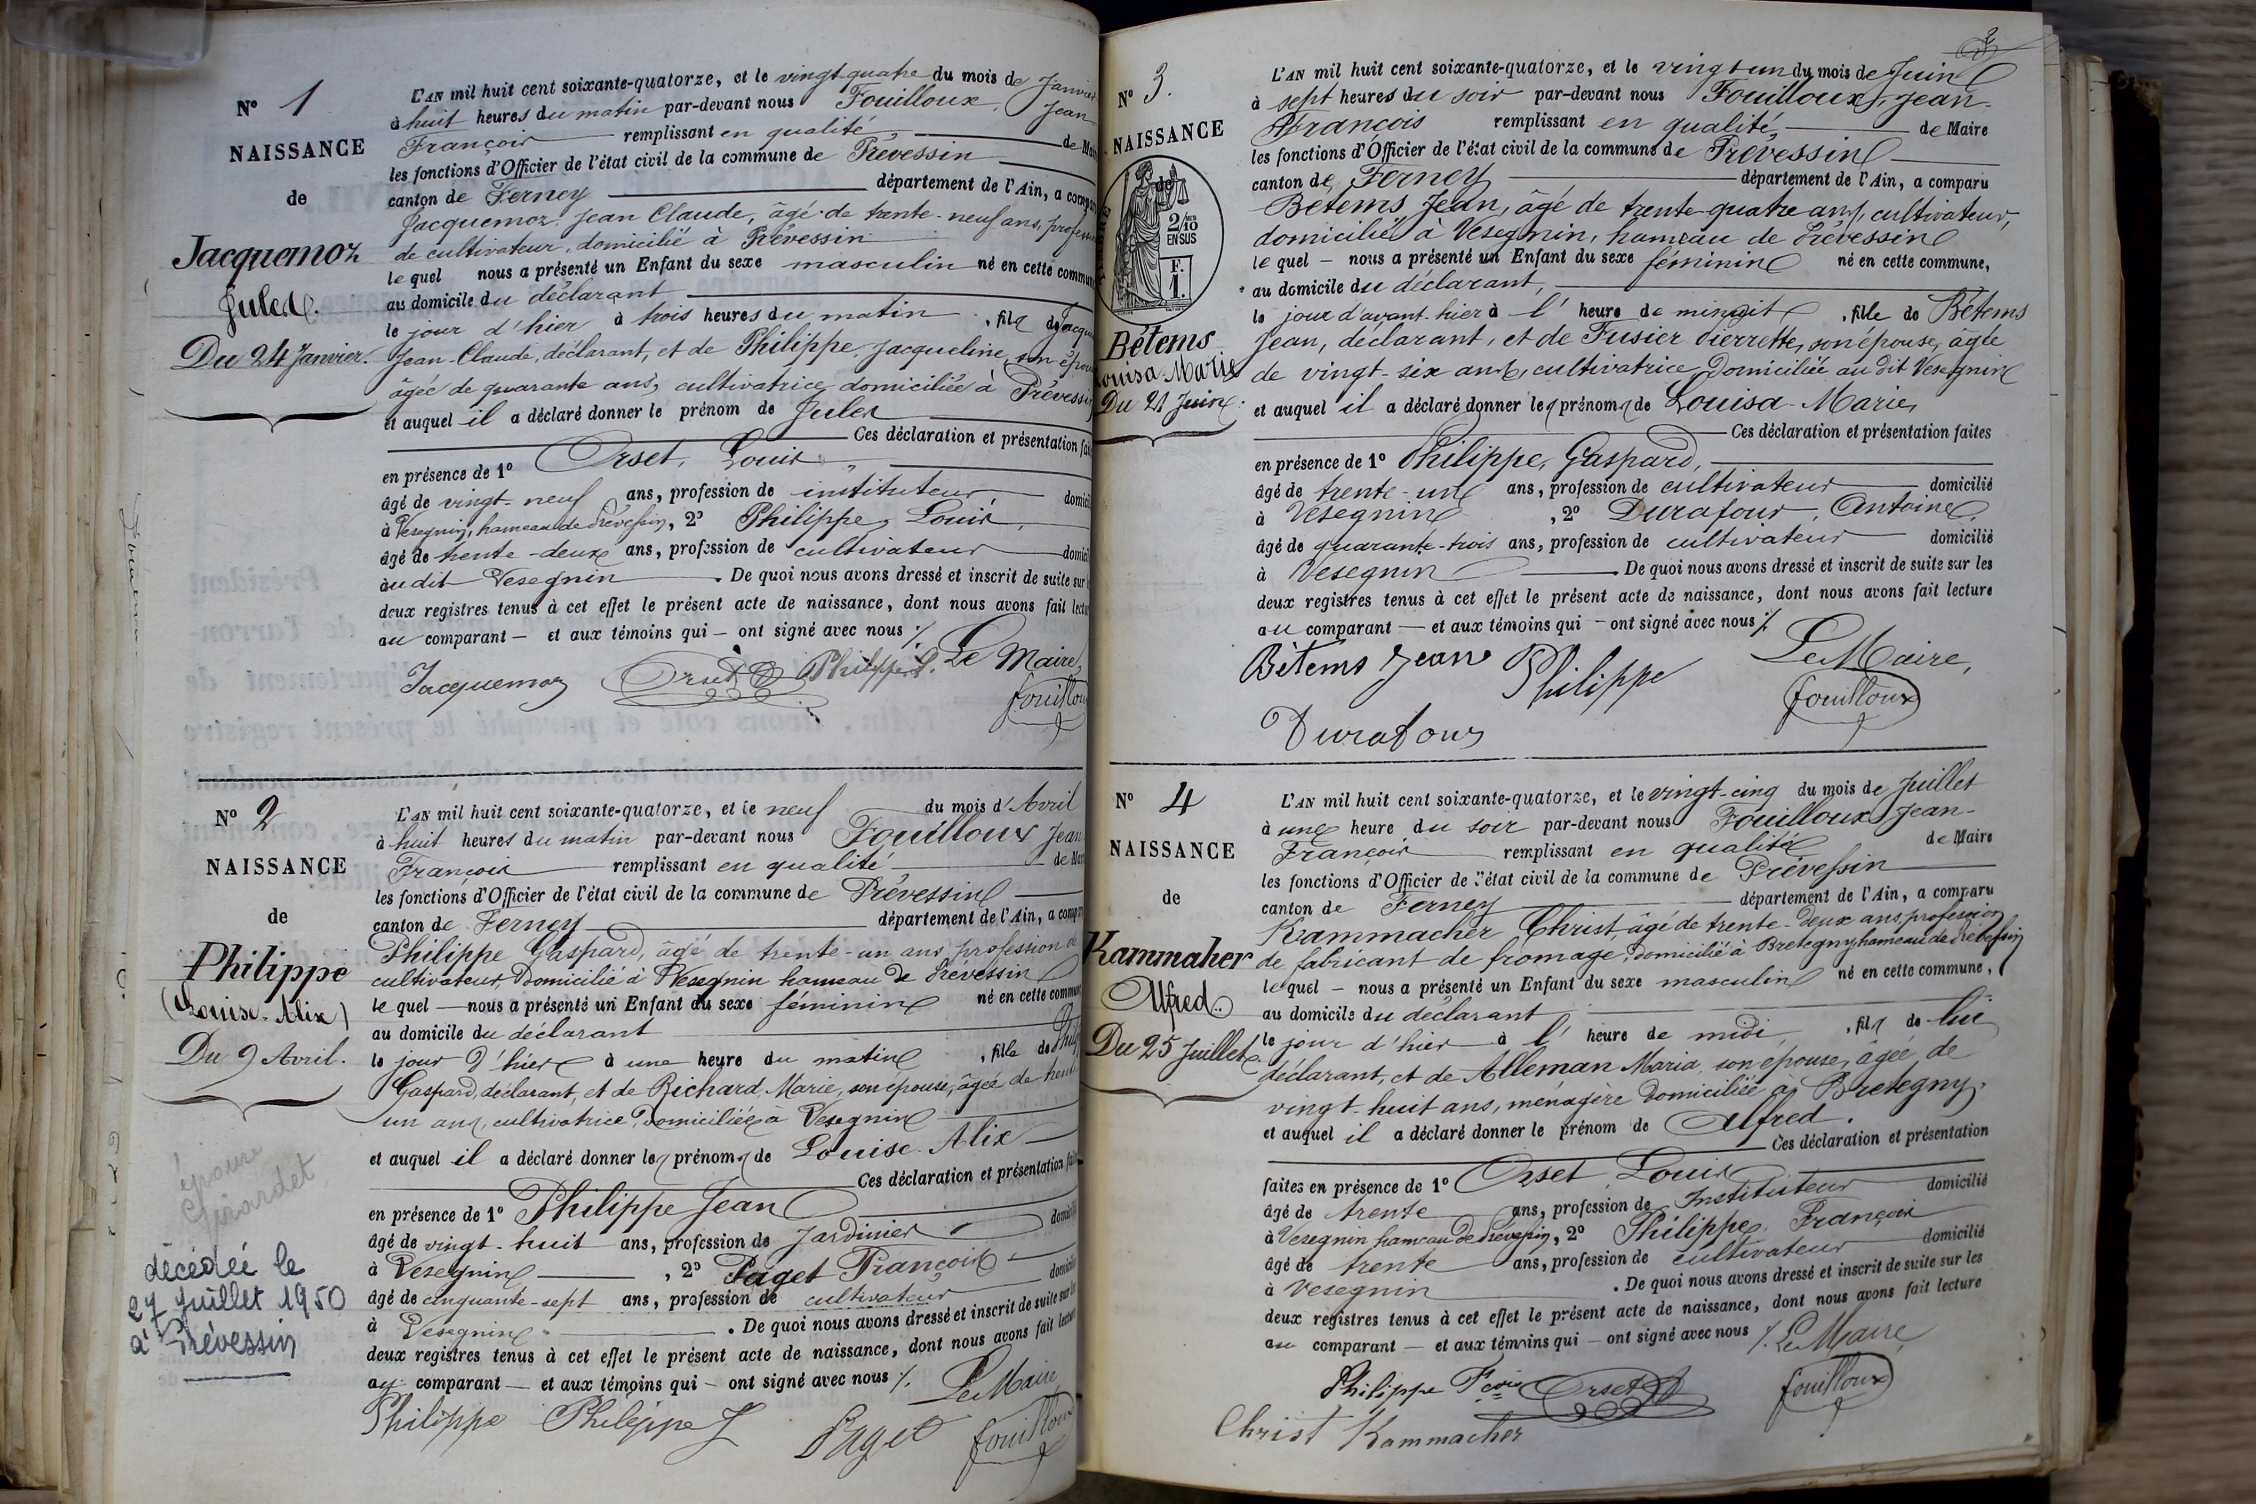 N° 1
NAISSANCE
de
Jacquemoz
Jules.
Du 24 Janvier.
L'AN mil huit cent soixante-quatorze, et le vingt quatre du mois de Janvier
à huit heures du matin par-devant nous Fouilloux, Jean
François remplissant en qualité de Mai
les fonctions d'Officier de l'état civil de la commune de Prévessin
canton de Ferney département de l'Ain, a compa
Jacquemoz Jean Claude, âgé de trente-neuf ans, profess
de cultivateur, domicilié à Prévessin
le quel nous a présenté un Enfant du sexe masculin né en cette commun
au domicile du déclarant
le jour d'hier à trois heures du matin, fils de Jacque
Jean Claude, déclarant, et de Philippe Jacqueline, son épou
âgée de quarante ans, cultivatrice, domiciliée à Prévessin
et auquel il a déclaré donner le prénom de Jules
Ces déclaration et présentation fai
en présence de 1° Orset, Louis,
âgé de vingt-neuf ans, profession de instituteur domicil
à Vesegnin, hameau de Prévessin, 2° Philippe, Louis,
âgé de trente-deux ans, profession de cultivateur domicil
au dit Vesegnin. De quoi nous avons dressé et inscrit de suite sur
deux registres tenus à cet effet le présent acte de naissance, dont nous avons fait lectu
au comparant — et aux témoins qui — ont signé avec nous ./. Le Maire,
Jacquemoz Orset Philippe L. Fouilloux
N° 2
NAISSANCE
de
Philippe
(Louise-Alix)
Du 9 Avril.
épouse
Girardet
décédée le
27 Juillet 1950
à Prévessin
L'AN mil huit cent soixante-quatorze, et le neuf du mois d'Avril
à huit heures du matin par-devant nous Fouilloux Jean
François remplissant en qualité de Mai
les fonctions d'Officier de l'état civil de la commune de Prévessin
canton de Ferney département de l'Ain, a compa
Philippe Gaspard, âgé de trente-un ans, profession de
cultivateur, domicilié à Vesegnin hameau de Prévessin
le quel — nous a présenté un Enfant du sexe féminin né en cette commun
au domicile du déclarant
le jour d'hier à une heure du matin, fille de Philip
Gaspard, déclarant, et de Richard, Marie, son épouse, âgée de trente
un ans, cultivatrice, domiciliée à Vesegnin
et auquel il a déclaré donner les prénoms de Louise-Alix
Ces déclaration et présentation fai
en présence de 1° Philippe Jean
âgé de vingt-huit ans, profession de Jardinier domicilié
à Vesegnin, 2° Paget François
âgé de cinquante-sept ans, profession de cultivateur domicilié
à Vesegnin. De quoi nous avons dressé et inscrit de suite sur les
deux registres tenus à cet effet le présent acte de naissance, dont nous avons fait lectur
au comparant — et aux témoins qui — ont signé avec nous ./. Le Maire
Philippe Philippe J Paget Fouilloux
2
N° 3.
NAISSANCE
de
2/10
EN SUS
F.
1.
Bétems
Louisa Marie
Du 21 Juin.
L'AN mil huit cent soixante-quatorze, et le vingt un du mois de Juin
à sept heures du soir par-devant nous Fouilloux, Jean-
François remplissant en qualité de Maire
les fonctions d'Officier de l'état civil de la commune de Prévessin
canton de Ferney département de l'Ain, a comparu
Bétems, Jean, âgé de trente-quatre ans, cultivateur,
domicilié à Vesegnin, hameau de Prévessin
le quel — nous a présenté un Enfant du sexe féminin né en cette commune,
au domicile du déclarant,
le jour d'avant hier à l'heure de minuit, fille de Bétems
Jean, déclarant, et de Fusier Pierrette, son épouse, âgée
de vingt-six ans, cultivatrice, domiciliée au dit Vesegnin
et auquel il a déclaré donner les prénoms de Louisa-Marie,
Ces déclaration et présentation faites
en présence de 1° Philippe, Gaspard,
âgé de trente-un ans, profession de cultivateur domicilié
à Vesegnin, 2° Durafour, Antoine,
âgé de quarante-trois ans, profession de cultivateur domicilié
à Vesegnin. De quoi nous avons dressé et inscrit de suite sur les
deux registres tenus à cet effet le présent acte de naissance, dont nous avons fait lecture
au comparant — et aux témoins qui — ont signé avec nous ./.
Bétems Jean Philippe Le Maire,
Fouilloux
Durafour
N° 4
NAISSANCE
de
Kammaher
Alfred.
Du 25 Juillet
L'AN mil huit cent soixante-quatorze, et le vingt-cinq du mois de Juillet
à une heure du soir par-devant nous Fouilloux Jean-
François remplissant en qualité de Maire
les fonctions d'Officier de l'état civil de la commune de Prévessin
canton de Ferney département de l'Ain, a comparu
Kammacher Christ, âgé de trente-deux ans, profession
de fabricant de fromage, domicilié à Bretegny hameau de Prévessin
le quel — nous a présenté un Enfant du sexe masculin né en cette commune,
au domicile du déclarant
le jour d'hier à l'heure de midi, fils de lui
déclarant, et de Alleman Maria, son épouse, âgée de
vingt-huit ans, ménagère domiciliée à Bretegny,
et auquel il a déclaré donner le prénom de Alfred.
Ces déclaration et présentation
faites en présence de 1° Orset, Louis
âgé de trente ans, profession de Instituteur domicilié
à Vesegnin hameau de Prévessin, 2° Philippe, François
âgé de trente ans, profession de cultivateur domicilié
à Vesegnin. De quoi nous avons dressé et inscrit de suite sur les
deux registres tenus à cet effet le présent acte de naissance, dont nous avons fait lecture
au comparant — et aux témoins qui — ont signé avec nous ./. Le Maire,
Philippe Fçois Orset Fouilloux
Christ Kammacher